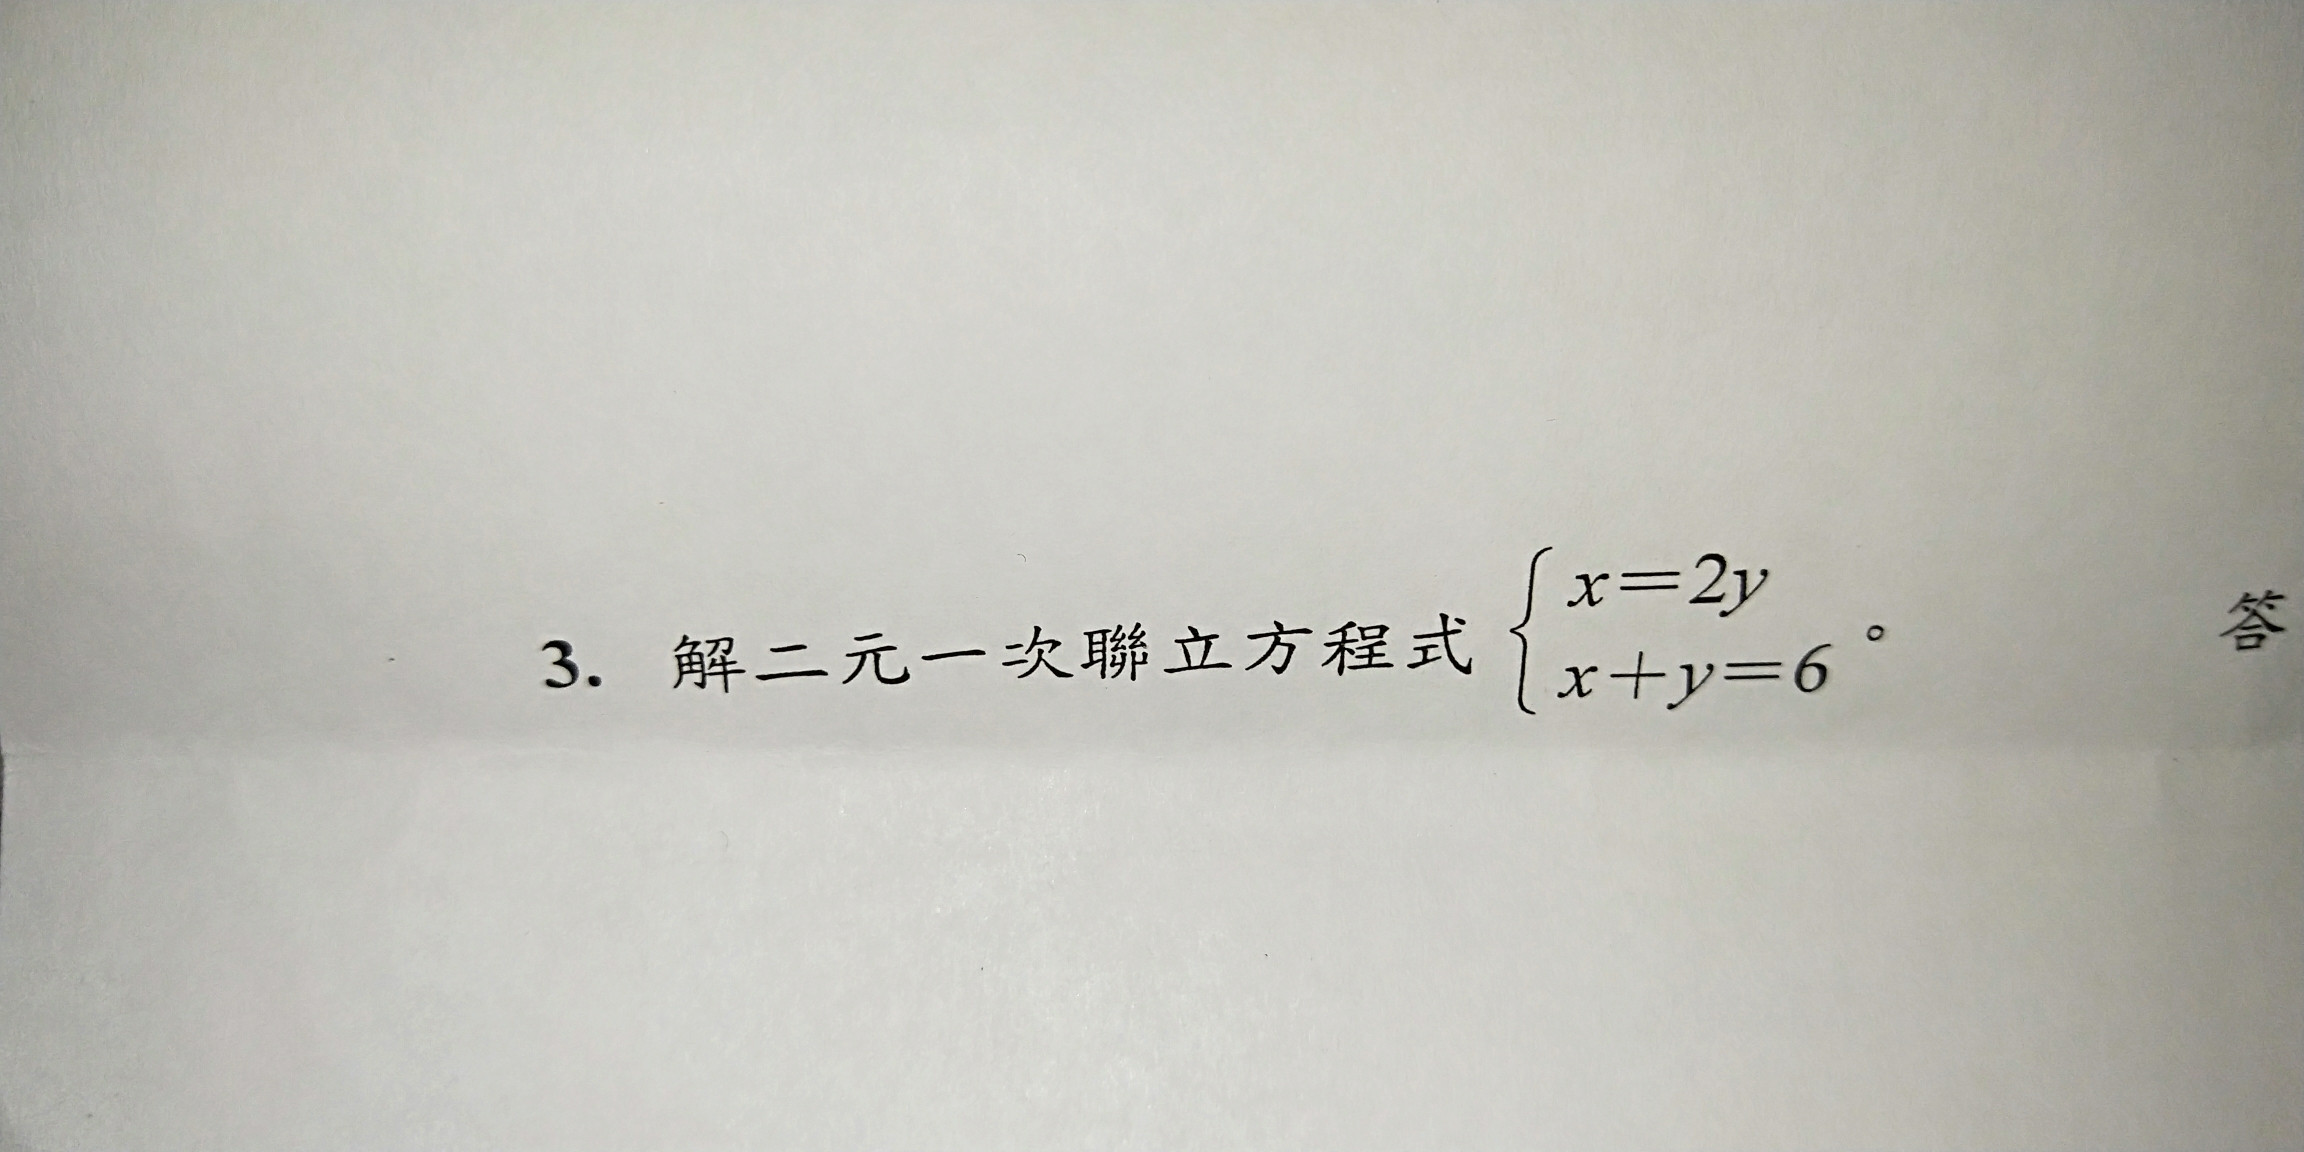 3. 解二元一次聯立方程式 { x=2y
x+y=6 。
答